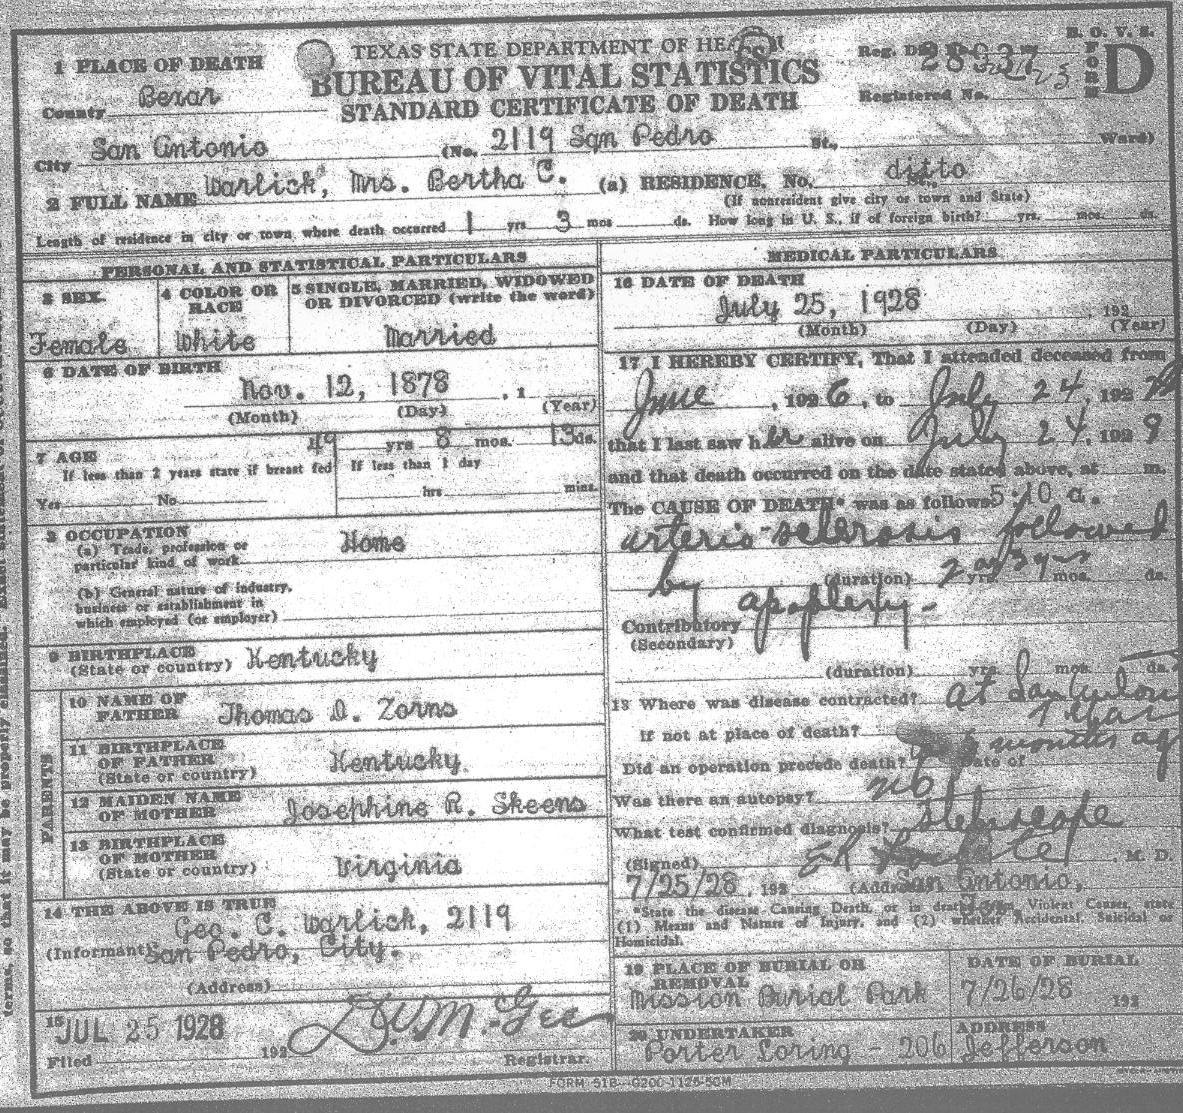 TEXAS STATE DEPARTMENT OF HEALTH
BUREAU OF VITAL STATISTICS
STANDARD CERTIFICATE OF DEATH
B. O. V. S.
FORM D
Reg. Dis. No. 28937
Registered No.
1 PLACE OF DEATH
County Bexar
City San Antonio (No. 2119 San Pedro St., Ward)
2 FULL NAME Warlick, Mrs. Bertha C. (a) RESIDENCE. No. ditto
(If nonresident give city or town and State)
Length of residence in city or town where death occurred 1 yrs 3 mos ds. How long in U. S., if of foreign birth? yrs. mos. ds.
PERSONAL AND STATISTICAL PARTICULARS
3 SEX.
Female
4 COLOR OR RACE
White
5 SINGLE, MARRIED, WIDOWED OR DIVORCED (write the word)
Married
6 DATE OF BIRTH
Nov. 12, 1878 , 1
(Month) (Day) (Year)
7 AGE 49 yrs 8 mos. 13 ds.
If less than 2 years state if breast fed If less than 1 day
Yes No hrs mins.
8 OCCUPATION
(a) Trade, profession or
particular kind of work Home
(b) General nature of industry,
business or establishment in
which employed (or employer)
9 BIRTHPLACE
(State or country) Kentucky
PARENTS
10 NAME OF
FATHER Thomas D. Zorns
11 BIRTHPLACE
OF FATHER
(State or country) Kentucky
12 MAIDEN NAME
OF MOTHER Josephine R. Skeens
13 BIRTHPLACE
OF MOTHER
(State or country) Virginia
14 THE ABOVE IS TRUE
Geo. C. Warlick, 2119
(Informant) San Pedro, City.
(Address)
15 JUL 25 1928
Filed 192 Registrar.
MEDICAL PARTICULARS
16 DATE OF DEATH
July 25, 1928 , 192
(Month) (Day) (Year)
17 I HEREBY CERTIFY, That I attended deceased from
June , 192 6, to July 24, 192
that I last saw her alive on July 24, 192
and that death occurred on the date stated above, at m.
The CAUSE OF DEATH* was as follows 5:10 a.
arterio-sclerosis followed
by
(duration) 2 or 3 yrs mos. ds.
apoplexy-
Contributory
(Secondary)
(duration) yrs mos ds.
18 Where was disease contracted? at San Antonio
Texas
If not at place of death? 6 months ago
Did an operation precede death? Date of
Was there an autopsy? no
What test confirmed diagnosis?
(Signed) , M. D.
7/25/28, 192 (Address) San Antonio,
*State the disease Causing Death, or in deaths from Violent Causes, state
(1) Means and Nature of Injury, and (2) whether Accidental, Suicidal or
Homicidal.
19 PLACE OF BURIAL OR
REMOVAL
Mission Burial Park
DATE OF BURIAL
7/26/28 192
20 UNDERTAKER
Porter Loring - 206
ADDRESS
Jefferson
FORM 51B